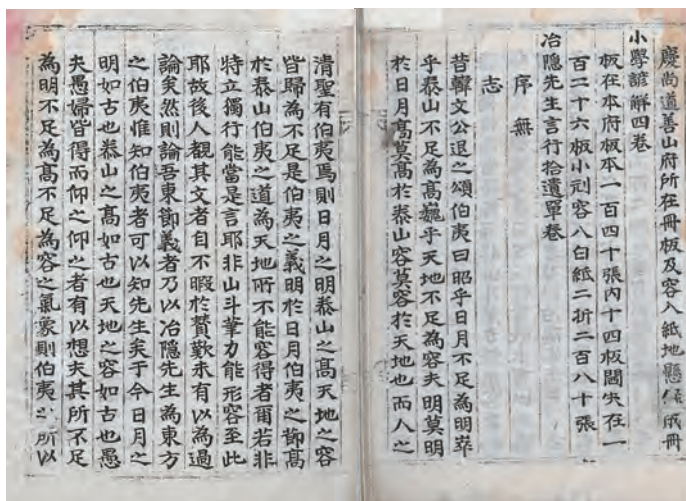 慶尚道善山府所在冊板及容入紙地懸錄成冊
小學諺解四卷
板在本府板本一百四十張內十四板闕失在一
百二十六板小刓容入白紙二折二百八十張
冶隱先生言行拾遺單卷
序無
志
昔韓文公退之頌伯夷曰昭乎日月不足為明崒
乎泰山不足為高巍乎天地不足為容夫明莫明
於日月高莫高於泰山容莫容於天地也而人之
清聖有伯夷焉則日月之明泰山之高天地之容
皆歸為不足是伯夷之義明於日月伯夷之節高
於泰山伯夷之道為天地所不能容得者爾若非
特立獨行能當是言耶非山斗筆力能形容至此
耶故後人觀其文者自不暇於贊歎未有以為過
論矣然則論吾東節義者乃以冶隱先生為東方
之伯夷惟知伯夷者可以知先生矣于今日月之
明如古也泰山之高如古也天地之容如古也愚
夫愚婦皆得而仰之仰之者有以想夫其所不足
為明不足為高不足為容之氣象則伯夷之所以